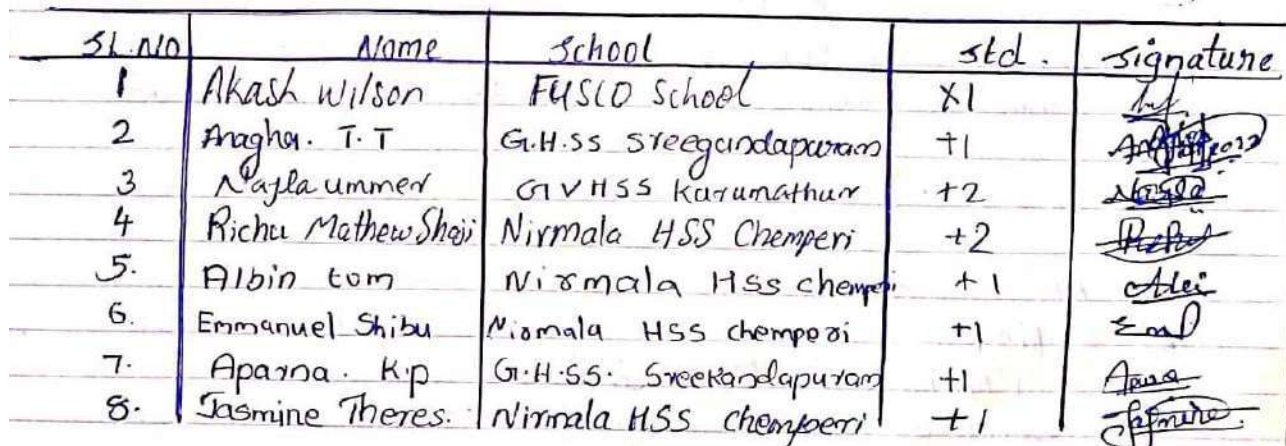 SL.NO Name School std. signature
1 Akash Wilson FUSCO School X1
2 Anagha. T.T G.H.SS Sreegandapuram +1
3 Najla ummer GVHSS Karumathur +2 Najla
4 Richu Mathew Shaji Nirmala HSS Chemperi +2
5. Albin tom Nirmala HSS chemperi +1
6. Emmanuel Shibu Nirmala HSS chemperi +1
7. Aparna. K.p G.H.SS. Sreekandapuram +1
8. Jasmine Theres. Nirmala HSS chemperi +1 Jasmine